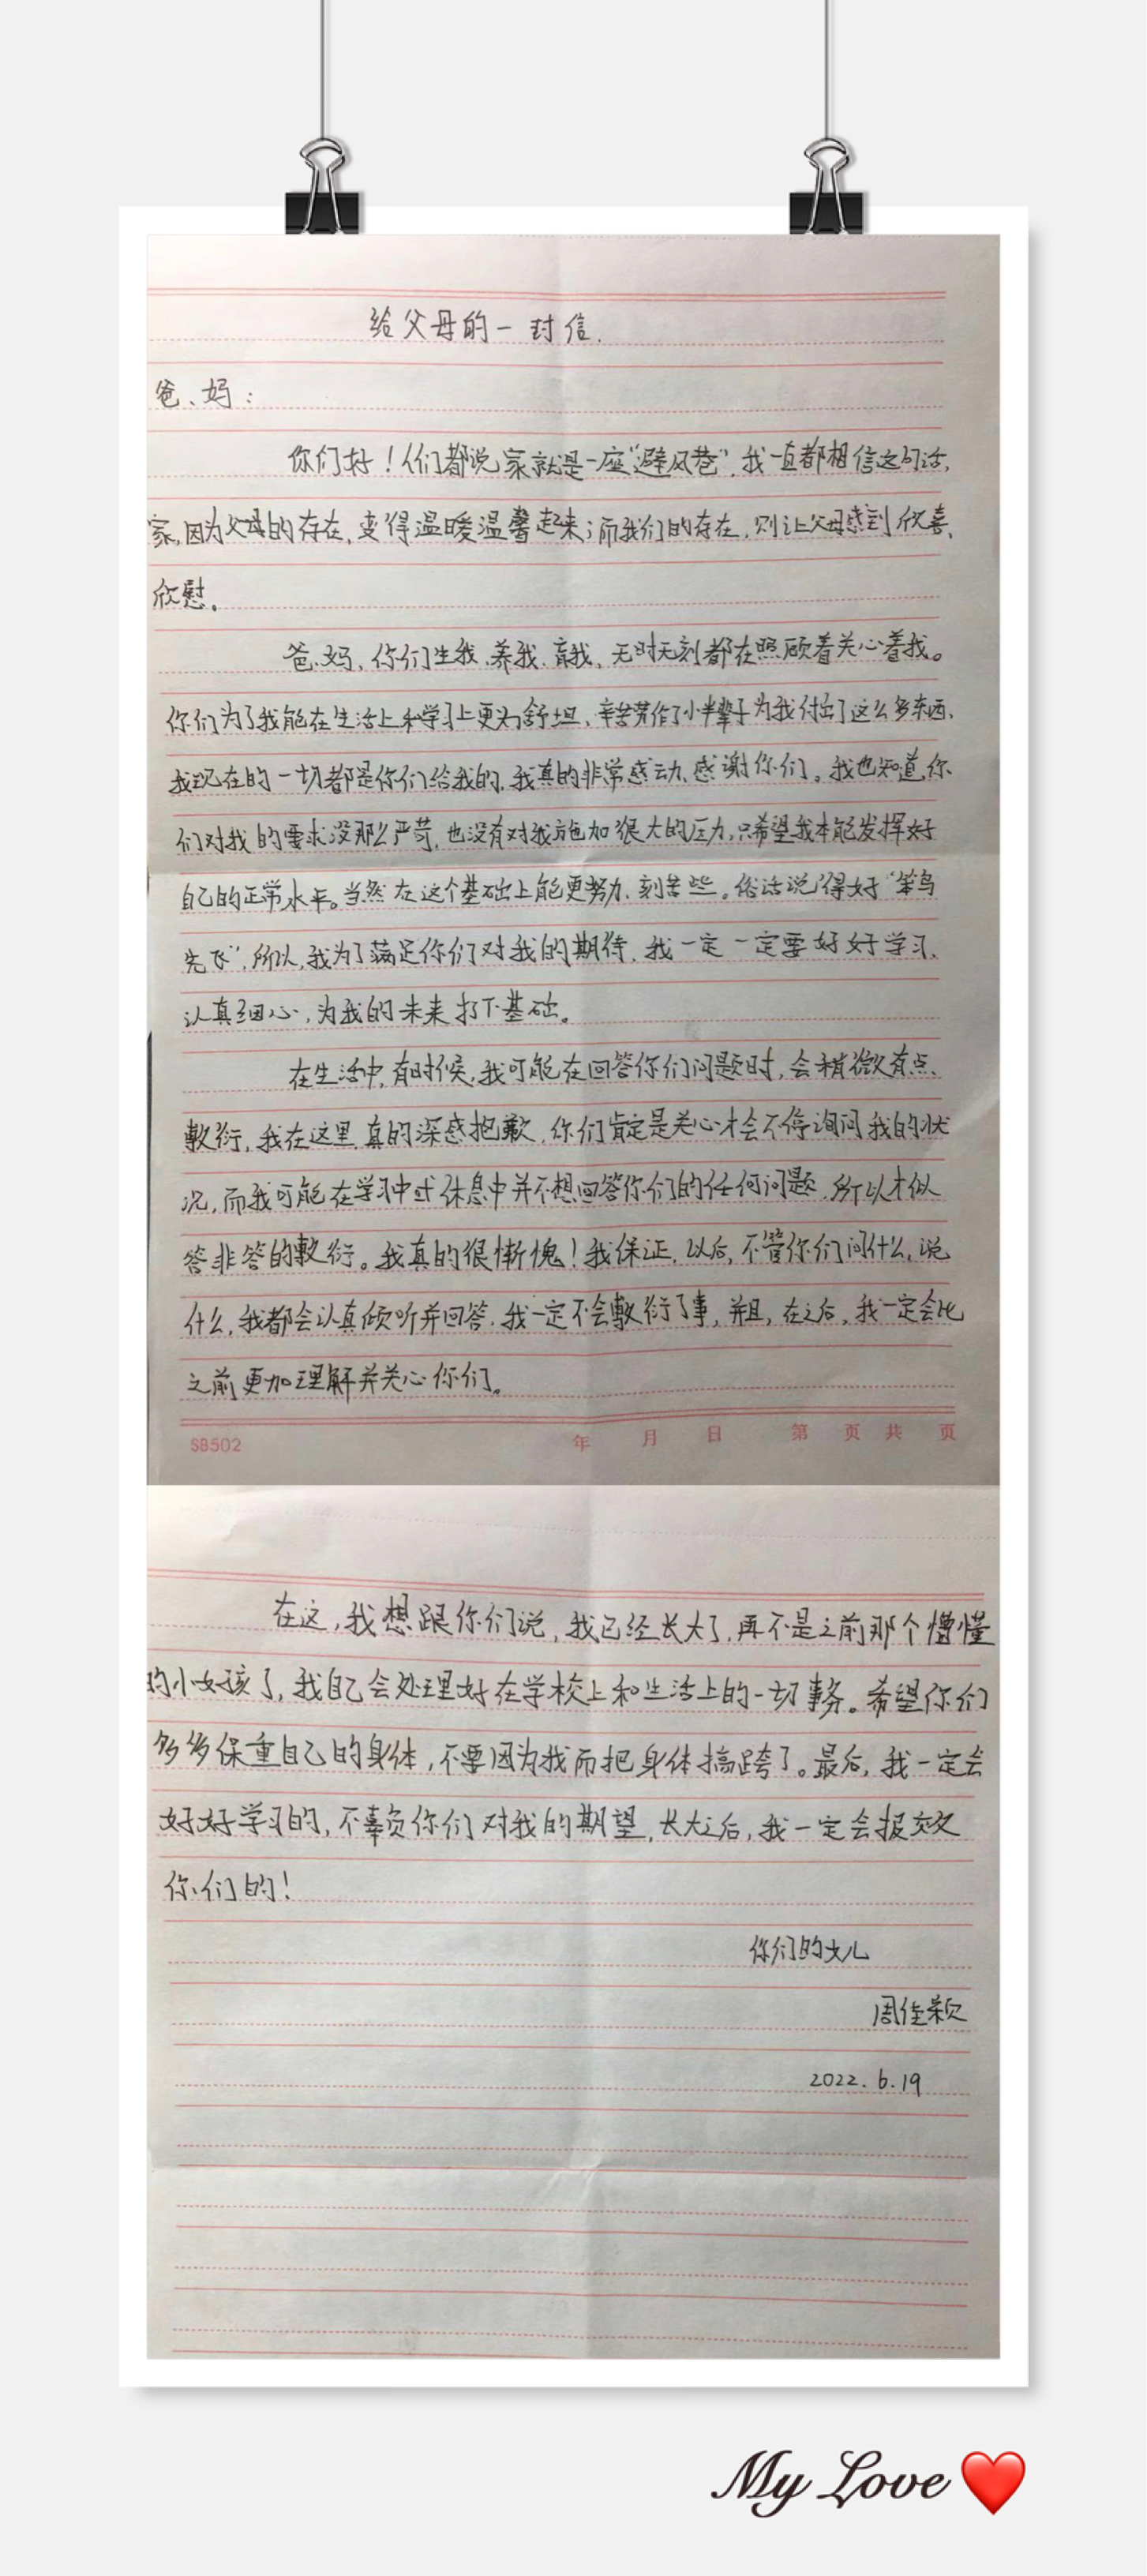 给父母的一封信.
爸、妈:
你们好!人们都说家就是一座“避风巷”,我一直都相信这句话,
家,因为父母的存在,变得温暖温馨起来;而我们的存在,则让父母感到欣喜、
欣慰。
爸、妈,你们生我、养我、育我,无时无刻都在照顾着关心着我。
你们为了我能在生活上和学习上更为舒坦,辛苦劳作了小半辈子为我付出了这么多东西,
我现在的一切都是你们给我的,我真的非常感动、感谢你们。我也知道,你
们对我的要求没那么严苛,也没有对我施加很大的压力,只希望我本能发挥好
自己的正常水平。当然在这个基础上能更努力、刻苦些。俗话说得好“笨鸟
先飞”,所以,我为了满足你们对我的期待,我一定一定要好好学习、
认真细心,为我的未来打下基础。
在生活中,有时候,我可能在回答你们问题时,会稍微有点、
敷衍,我在这里,真的深感抱歉,你们肯定是关心才会不停询问我的状
况,而我可能在学习中或休息中并不想回答你们的任何问题,所以才似
答非答的敷衍。我真的很惭愧!我保证,以后,不管你们问什么,说
什么,我都会认真倾听并回答,我一定不会敷衍了事,并且,在之后,我一定会比
之前更加理解并关心你们。
SB502 年 月 日 第 页 共 页
在这,我想跟你们说,我已经长大了,再不是之前那个懵懂
的小女孩了,我自己会处理好在学校上和生活上的一切事务。希望你们
多多保重自己的身体,不要因为我而把身体搞跨了。最后,我一定会
好好学习的,不辜负你们对我的期望,长大之后,我一定会报效
你们的!
你们的女儿
周佳颖
2022.6.19
My Love